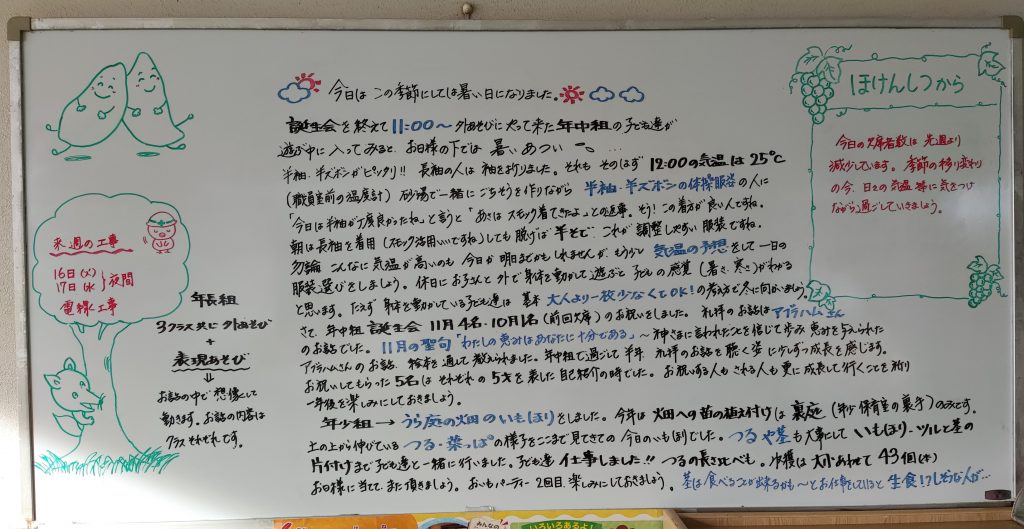 今日は この季節にしては暑い日になりました。
誕生会を終えて 11:00〜 外あそびにやって来た 年中組の子ども達が
遊ぶ中に 入ってみると、お日様の下では 暑い あつい
半袖、半ズボンがピッタリ!! 長袖の人は 袖を折りました。それも そのはず 12:00の気温は 25℃
(職員室前の温度計) 砂場で一緒に ごちそうを作りながら 半袖・半ズボンの体操服姿の人に
「今日は半袖が丁度良かったね」と言うと「あさは スモック着てきたよ」との返事。そう! この着方が良いんですね。
朝は長袖を着用(スモック活用いいですね)しても 脱げば 半そで、これが 調整しやすい 服装ですね。
勿論 こんなに 気温が高いのも 今日か 明日までかもしれませんが、もう少し 気温の予想をして 一日の
服装選びをしましょう。休日に お子さんと 外で身体を動かして遊ぶと 子どもの感覚(暑さ、寒さ)がわかる
と思います。たえず 身体を動かしている子ども達は 基本 大人より一枚少なくてOK!の考え方で冬に向かいましょう。
さて、年中組 誕生会 11月4名・10月1名(前回欠席)のお祝いをしました。礼拝のお話は アブラハムさん
のお話でした。11月の聖句「わたしの恵みはあなたに十分である」〜神さまに言われたことを信じて歩み 恵みを与えられた
アブラハムさんのお話、絵本を通して教えられました。年中組で過ごして半年、礼拝のお話を聴く姿に少しずつ成長を感じます。
お祝いしてもらった 5名は それぞれの 5才を表した 自己紹介の時でした。お祝いする人も される人も 更に成長して行くことを祈り
一年後を楽しみにしておきましょう。
年少組 → うら庭の畑の いもほりをしました。今年は 畑への苗の植え付けは 裏庭(年少 保育室の裏手)のみです。
土の上から伸びている つる・葉っぱの様子をここまで見てきての 今日のいもほりでした。つるや茎も大事にして いもほり・ツルと茎の
片付けまで 子ども達と一緒に行いました。子ども達 仕事しました!! つるの長さ比べも。収穫は 大小あわせて 43個(本)
お日様に当てて、また頂きましょう。おいもパーティー2回目、楽しみにしておきましょう。茎は食べることが出来るかも〜とお仕事をしていると 生食!?しそうな人が…
来週の工事
16日(火)
17日(水)
夜間
電線工事
年長組
3クラス共に 外あそび
+
表現あそび
お話の中で 想像して
動きます。お話の内容は
クラス それぞれです。
ほけんしつから
今日の欠席者数は 先週より
減少しています。季節の移り変わり
の今、日々の気温 等に気をつけ
ながら過ごしていきましょう。
みんなの
いろいろあるよ!